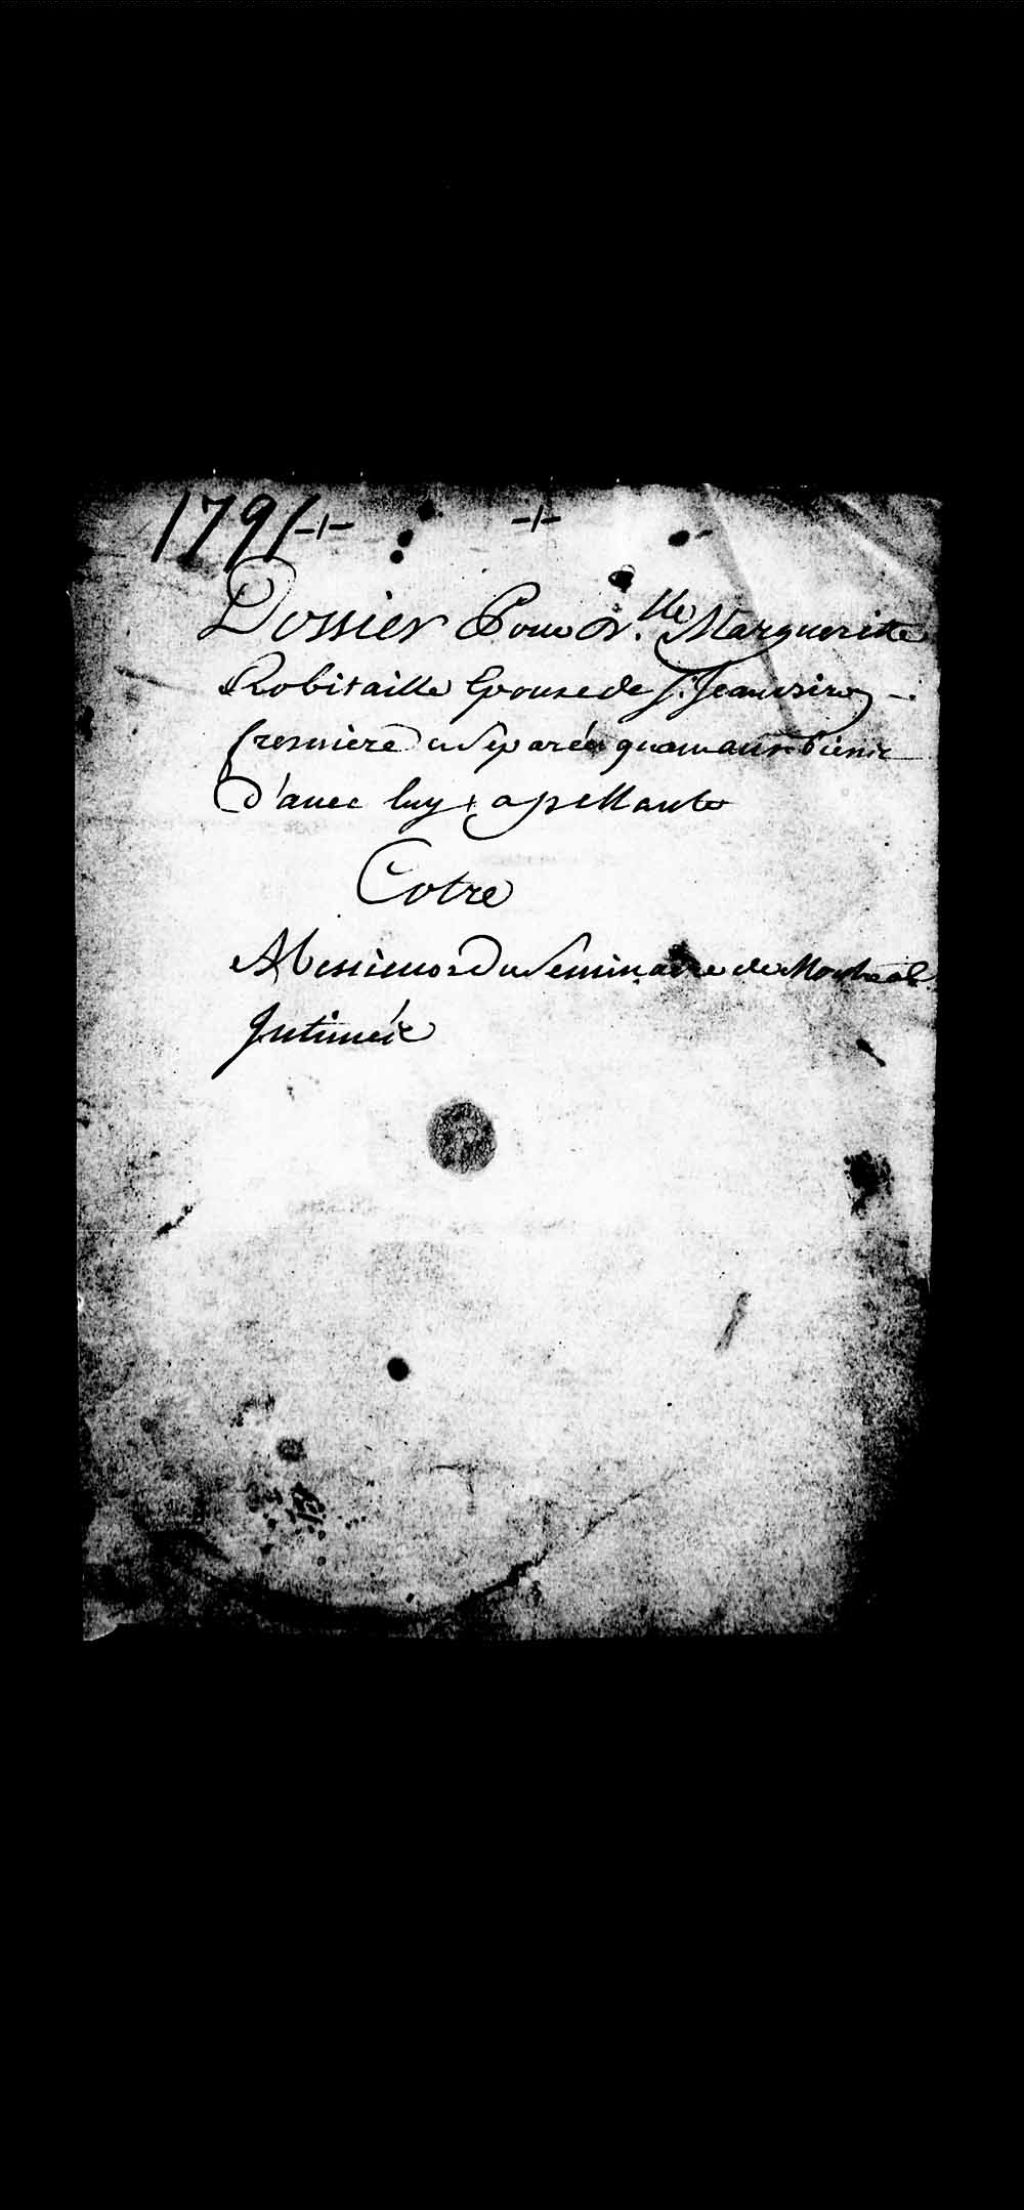 1791 -/- -/-
Dossier Pour D.lle Margueritte
Robitaille Epouse de Sr. Jean
fresniere Separée quant aux biens
D'avec luy apellante
Cotre
Messieurs Du Seminaire de Montreal
Intimés